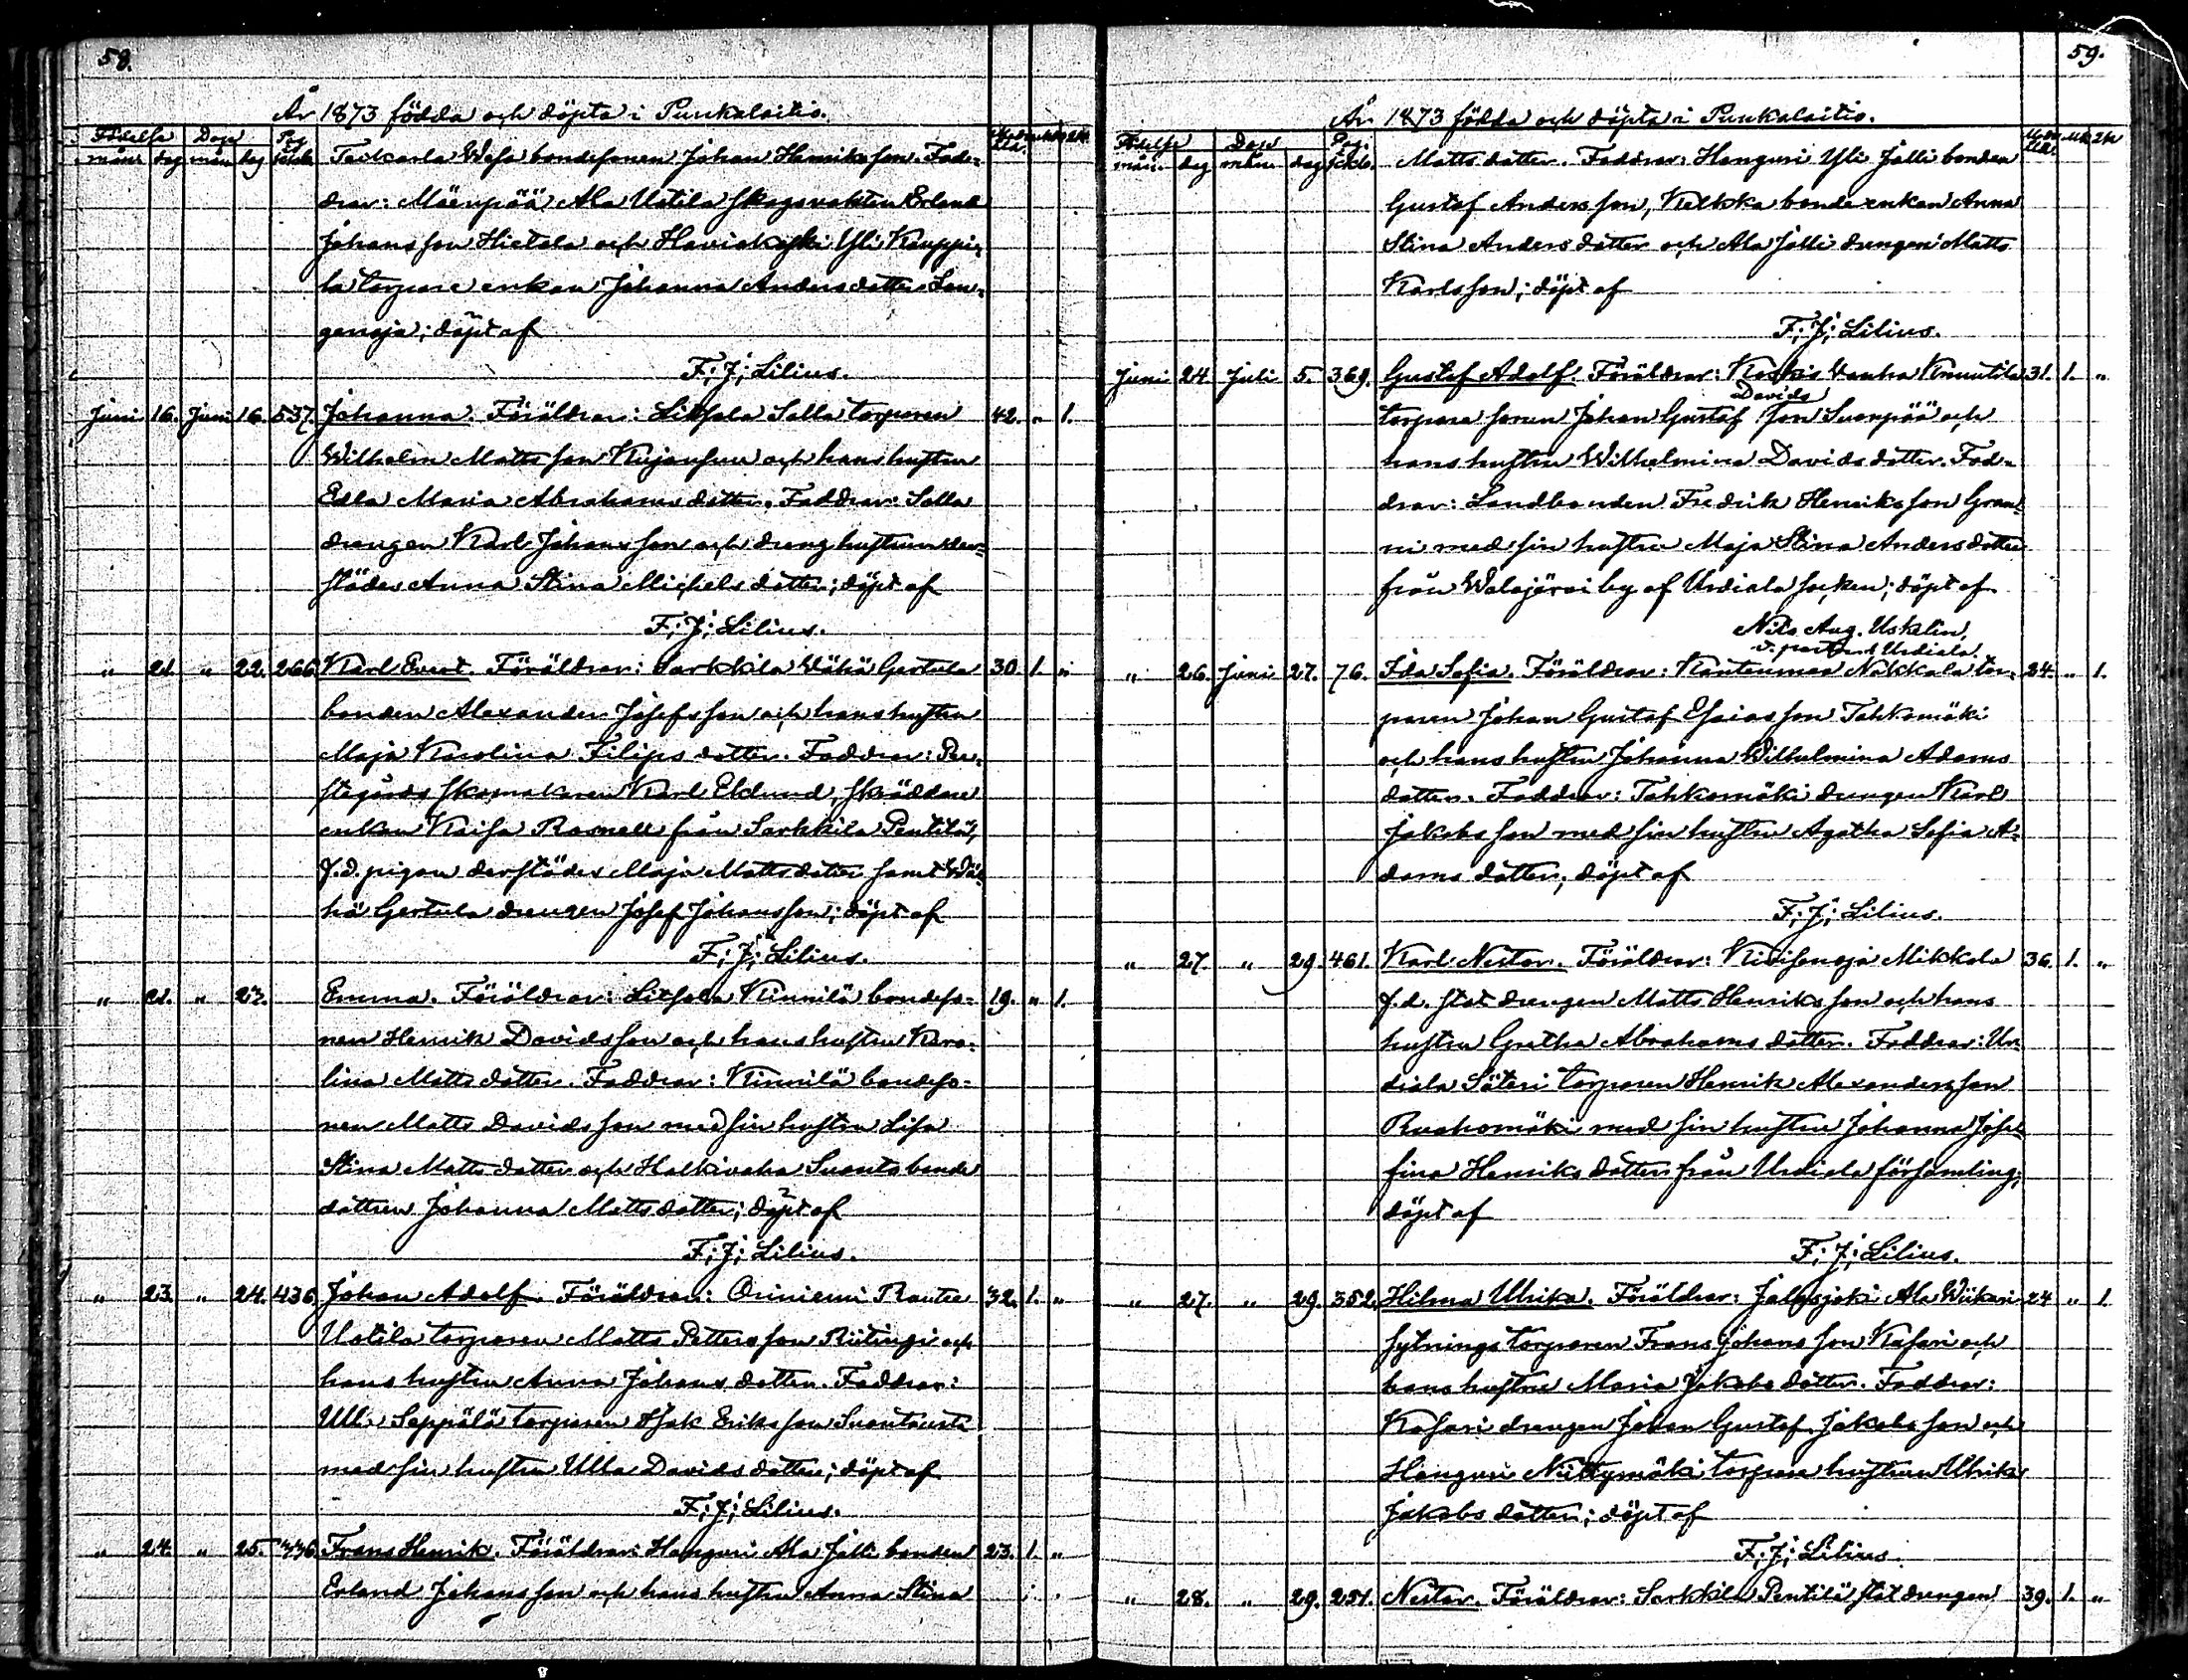 58.
År 1873 födda och döpta i Punkalaitio.
Födelse Dop Pag. Modrens M.k. Q.k.
mån. dag mån. dag ålder
bondesonen Johan Henriksson. Fad-
drar: Mäenpää Ala Uotila skogsvakten Erland
Johansson Hietala och Haviokoski Yli Kauppi-
la torpare enkan Johanna Andersdotter
döpt af
F. J. Lilius.
Juni 16. Juni 16. 537. Johanna. Föräldrar: Liitsola Salla torparen 42. " 1.
Wilhelm Mattsson och hans hustru
Edla Maria Abrahamsdotter. Faddrar: Salla
drengen Karl Johansson och dreng hustrun der-
städes Anna Stina Michelsdotter; döpt af
F. J. Lilius.
" 21. " 22. 266. Karl Evert. Föräldrar: Sarkkila Wähä Gertula 30. 1. "
bonden Alexander Josefsson och hans hustru
Maja Karolina Filipsdotter. Faddrar: Pre-
stgårds skomakaren Karl Eklund, skräddare
enkan Kaisa från Sarkkila Pentilä,
f.d. pigan derstädes Maja Mattsdotter samt Wä-
hä Gertula drengen Josef Johansson; döpt af
F. J. Lilius.
" 21. " 22. Emma. Föräldrar: Liitsola Kinnilä bondeso- 19. " 1.
nen Henrik Davidsson och hans hustru Karo-
lina Mattsdotter. Faddrar: Kinnilä bondeso-
nen Matts Davidsson med sin hustru Lisa
Stina Mattsdotter och Halkivaha bonde
dottren Johanna Mattsdotter; döpt af
F. J. Lilius.
" 23. " 24. 436. Johan Adolf. Föräldrar: Oriniemi Rautee 32. 1. "
Uotila torparen Matts Pettersson och
hans hustru Anna Johansdotter. Faddrar:
Seppälä torparen Isak Eriksson
med sin hustru Ulla Davidsdotter; döpt af
F. J. Lilius.
" 24. " 25. Frans Henrik. Föräldrar: Hanguri Ala Jalli bonden 23. 1. "
Erland Johansson och hans hustru Anna Stina
59.
År 1873 födda och döpta i Punkalaitio.
Födelse Dop Pag. M.k. Q.k.
mån. dag mån. dag
Mattsdotter. Faddrar: Hanguri Yli Jalli bonden
Gustaf Andersson, bonde enkan Anna
Stina Andersdotter och Ala Jalli drengen Matts
Karlsson; döpt af
F. J. Lilius.
Juni 24 Juli 5. 369. Gustaf Adolf. Föräldrar: Wanha Knuutila 31. 1. "
Davids
torpare sonen Johan Gustaf son Suonpää och
hans hustru Wilhelmina Davidsdotter. Fad-
drar: Landbonden Fredrik Henriksson
med sin hustru Maja Stina Andersdotter
från Walajärvi by af Urdiala socken; döpt af
Nils Aug. Uskelin,
v. pastor i Urdiala.
" 26. Juni 27. 76. Ida Sofia. Föräldrar: Kanteenmaa Nakkala tor- 24. " 1.
paren Johan Gustaf Esaiasson Tahkomäki
och hans hustru Johanna Wilhelmina Adams
dotter. Faddrar: Tahkomäki drengen Karl
Jakobsson med sin hustru Agatha Sofia A-
damsdotter; döpt af
F. J. Lilius.
" 27. " 29. 461. Karl Nestor. Föräldrar: Kivisenoja Mikkola 36. 1. "
f.d. stat drengen Matts Henriksson och hans
hustru Gretha Abrahamsdotter. Faddrar: Ur-
diala Säteri torparen Henrik Alexandersson
Ruohomäki med sin hustru Johanna Jose-
fina Henriksdotter från Urdiala församling;
döpt af
F. J. Lilius.
" 27. " 29. 352. Hilma Ulrika. Föräldrar: Jalasjoki Ala Wiikari 24 " 1.
sytnings torparen Frans Johansson Kasari och
hans hustru Maria Jakobsdotter. Faddrar:
Kasari drengen Johan Gustaf Jakobsson och
Hanguri Niittymäki torpare hustrun Ulrika
Jakobsdotter; döpt af
F. J. Lilius.
" 28. " 29. 251. Nestor. Föräldrar: Sarkkila Pentilä stat drengen 39. 1. "